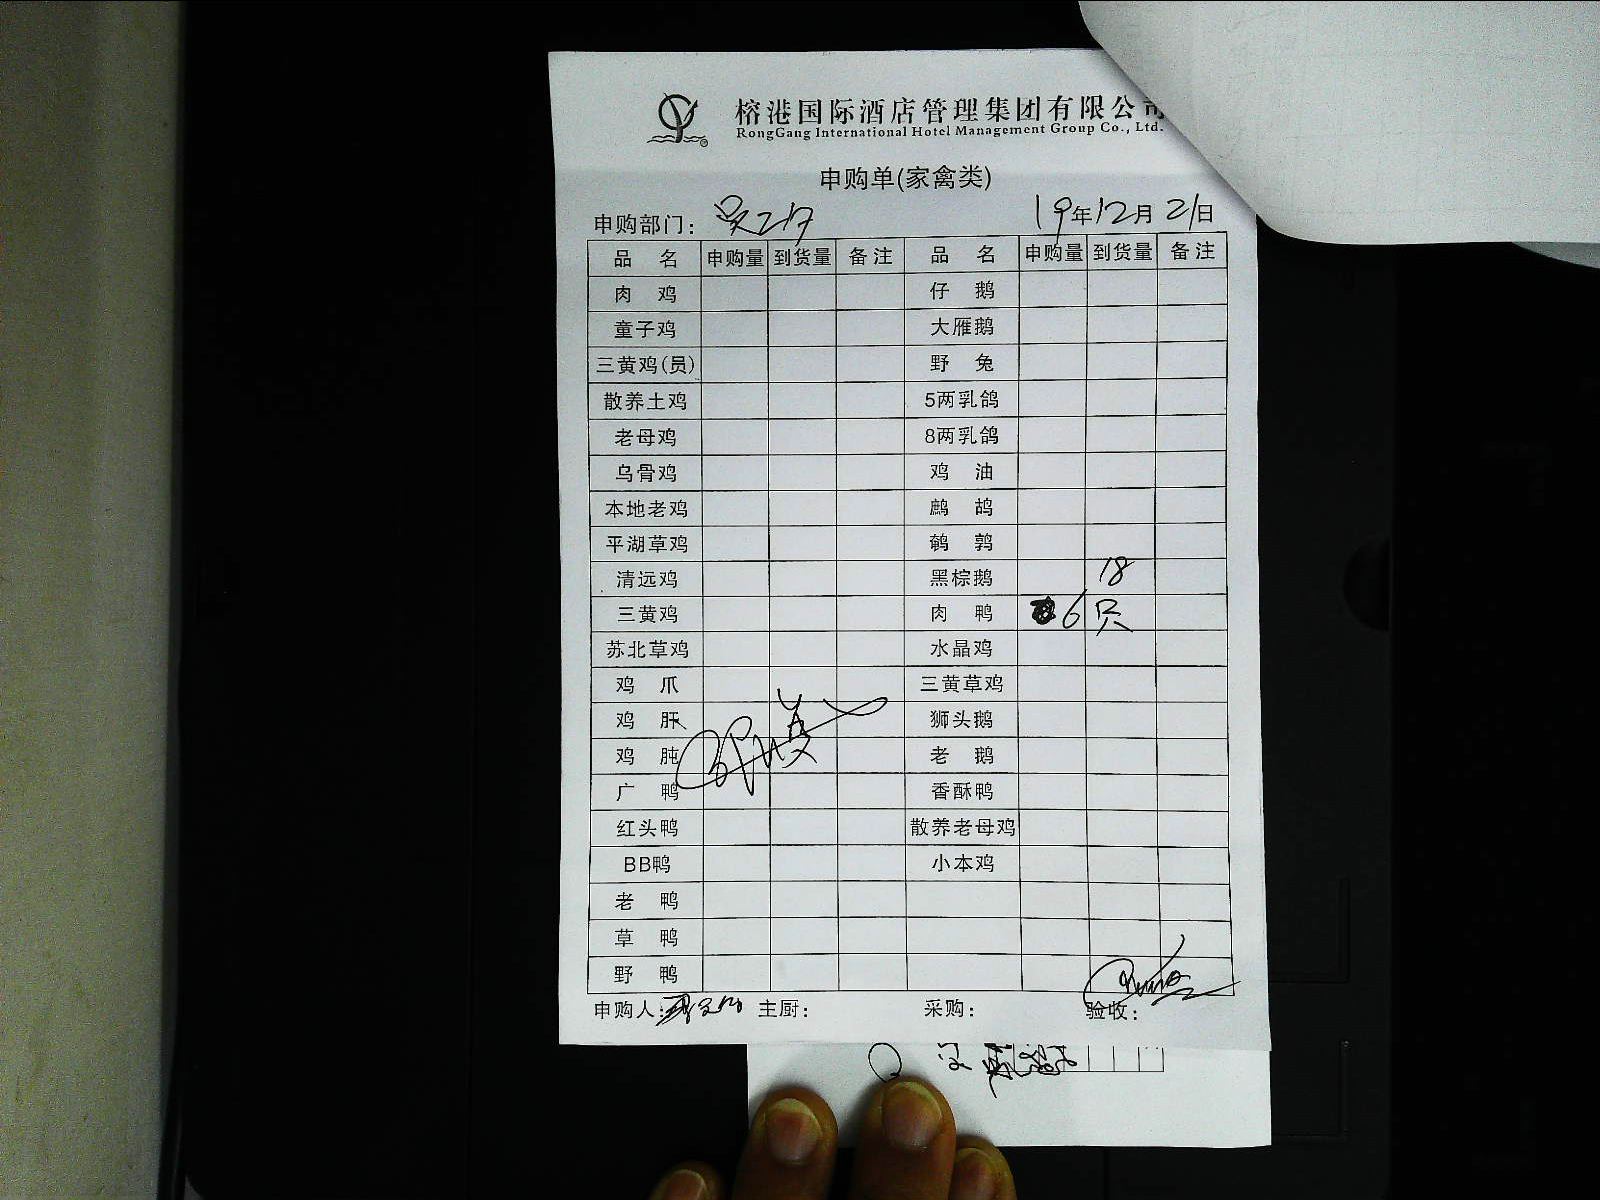 榕港国际酒店管理集团有限公司
RongGang International Hotel Management Group Co., Ltd.
申购单(家禽类)
申购部门: 19年12月21日
品 名 申购量 到货量 备注 品 名 申购量 到货量 备注
肉 鸡 仔 鹅
童子鸡 大雁鹅
三黄鸡(员) 野 兔
散养土鸡 5两乳鸽
老母鸡 8两乳鸽
乌骨鸡 鸡 油
本地老鸡 鹧 鸪
平湖草鸡 鹌 鹑
清远鸡 黑棕鹅 18
三黄鸡 肉 鸭 6只
苏北草鸡 水晶鸡
鸡 爪 三黄草鸡
鸡 肝 狮头鹅
鸡 肫 老 鹅
广 鸭 香酥鸭
红头鸭 散养老母鸡
BB鸭 小本鸡
老 鸭
草 鸭
野 鸭
申购人: 主厨: 采购: 验收: